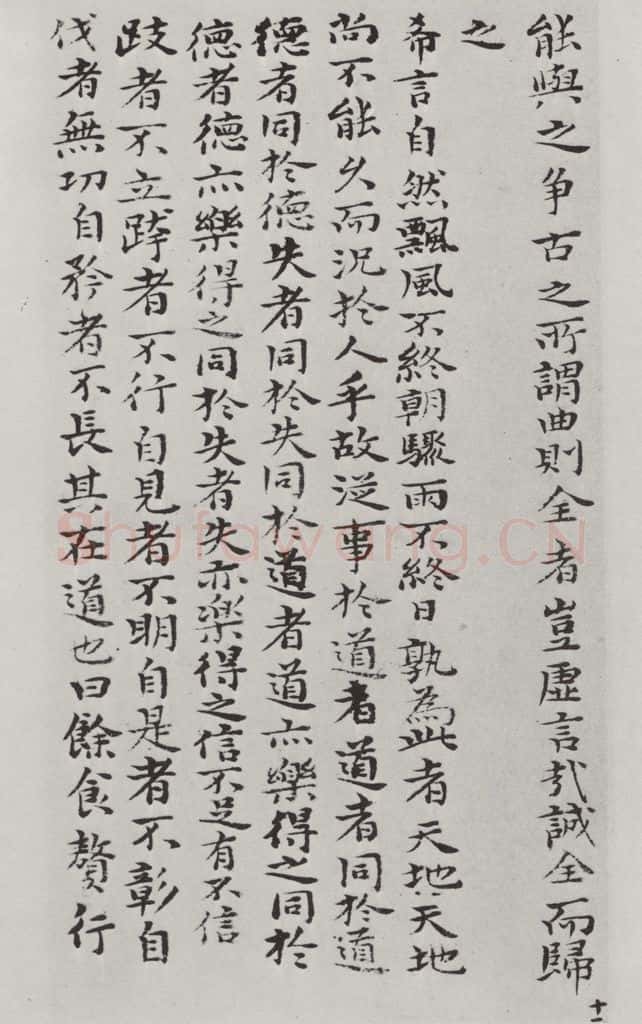 能與之争古之所謂曲則全者豈虛言㢤誠全而歸
之
希言自然飄風不終朝驟雨不終日孰為此者天地天地
尚不能久而況於人乎故從事於道者道者同於道
德者同於德失者同於失同於道者道亦樂得之同於
德者德亦樂得之同於失者失亦樂得之信不足有不信
跂者不立跨者不行自見者不明自是者不彰自
伐者無功自矜者不長其在道也曰餘食贅行
十一
Shufawang.CN